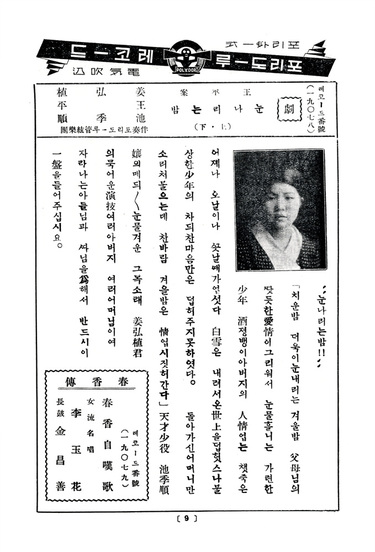 포리도ー루 레코ー드
電氣吹込
레코ー드番號
(一九〇七八)
劇
王平 案
눈나리는밤
(上・下)
姜弘植
王平
池季順
伴奏포리도ー루管絃樂團
눈나리는밤!!
「치운밤 더욱이눈내리는 겨울밤 父母님의
땃듯한愛情이그리워서 눈물흘니는 가련한
少年 酒정뱅이아버지의 人情업는 챗죽은
어제나 오날이나 끗날때가업섯다 白雪은 내려서온世上을덥헛스나불
상한少年의 차듸찬마음만은 덥허주지못하엿다. 돌아가신어머니만
소리처불으는데 찬바람 겨울밤은 情업시짓허간다」天才少役 池季順
孃의메듸〱눈물겨운 그목소래 姜弘植君
의묵어운演技여러아버지 여러어머님이여
자라나는아들님과 따님을爲해서 반드시이
一盤을들어주십시요。
春香傳
레코ー드番號
(一九〇七九)
春香自嘆歌
女流名唱 李玉花
長鼓 金昌善
[9]